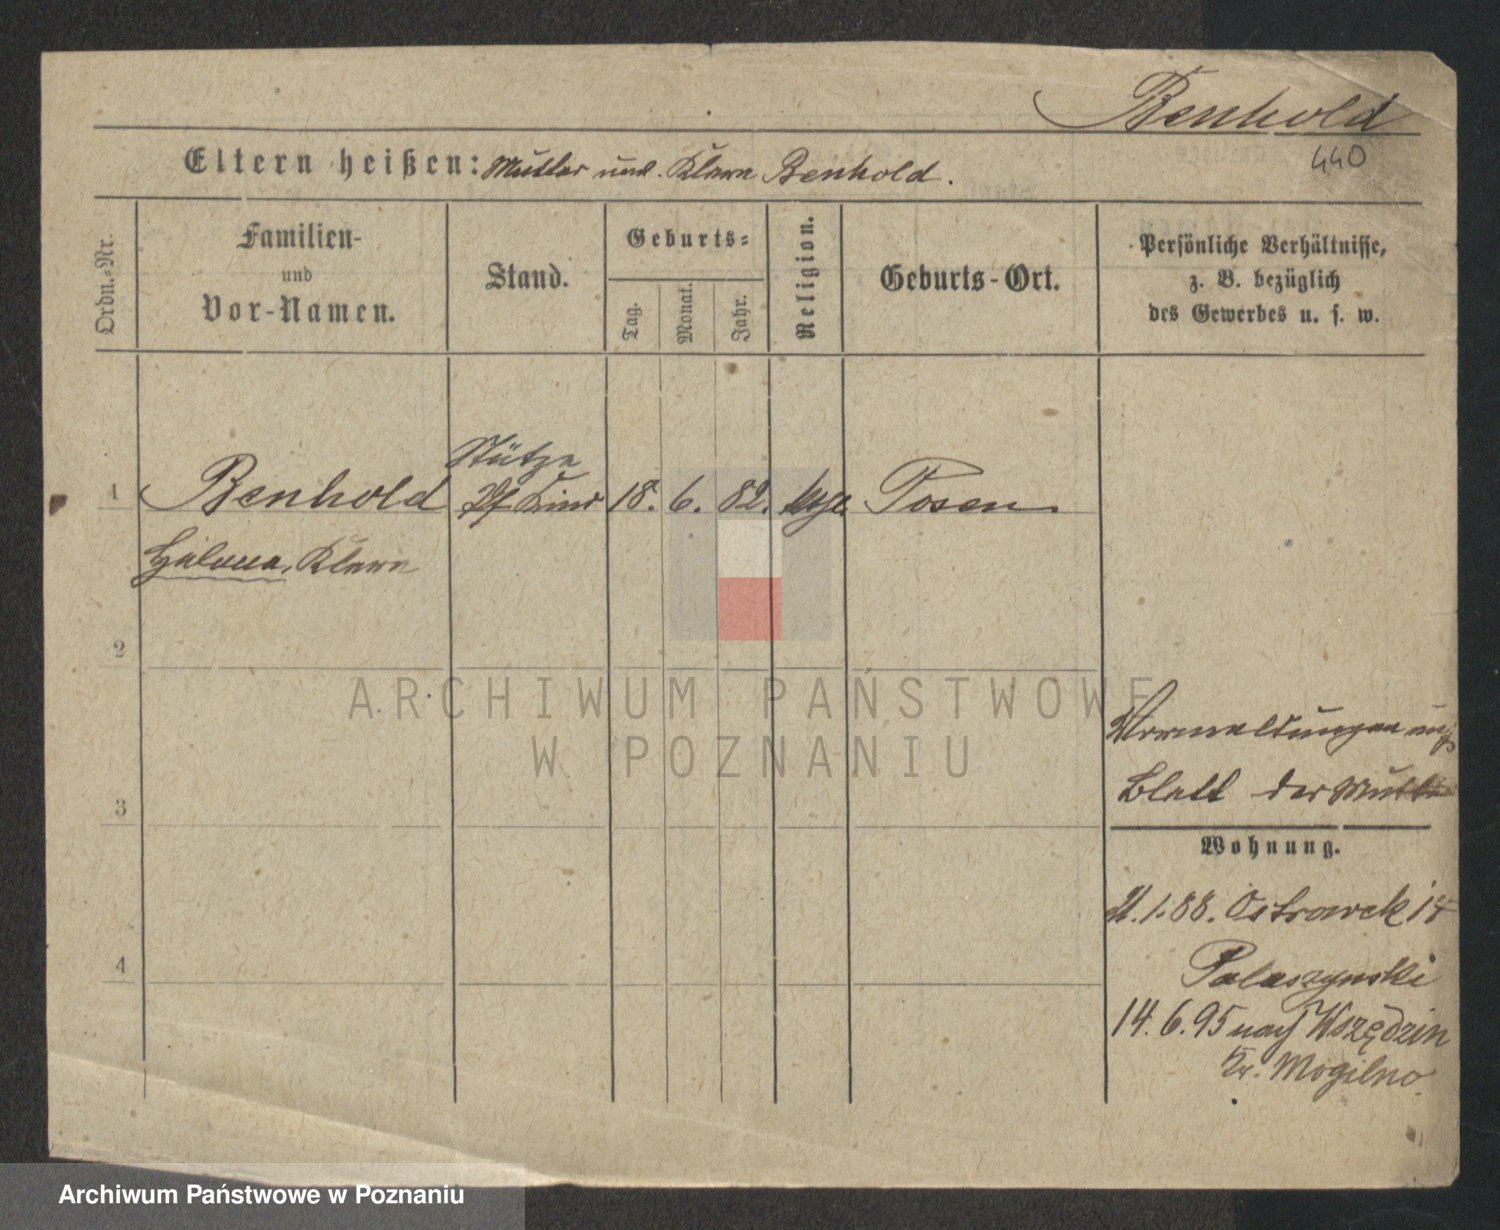 Benhold
440
Eltern heißen: Mutter unv. Klara Benhold.
Ordn.-Nr.
Familien-
und
Vor-Namen.
Stand.
Geburts-
Tag.
Monat.
Jahr.
Religion.
Geburts-Ort.
Persönliche Verhältnisse,
z. B. bezüglich
des Gewerbes u. s. w.
Stütze
1 Benhold Kind 18. 6. 82. Posen.
Helena, Klara
2
ARCHIWUM PAŃSTWOWE
W POZNANIU
3
4
Blatt der Mutter
Wohnung.
21.1.88. Ostrowek 14
Palaszynski
14.6.95 nach Wszędzin
Kr. Mogilno
Archiwum Państwowe w Poznaniu